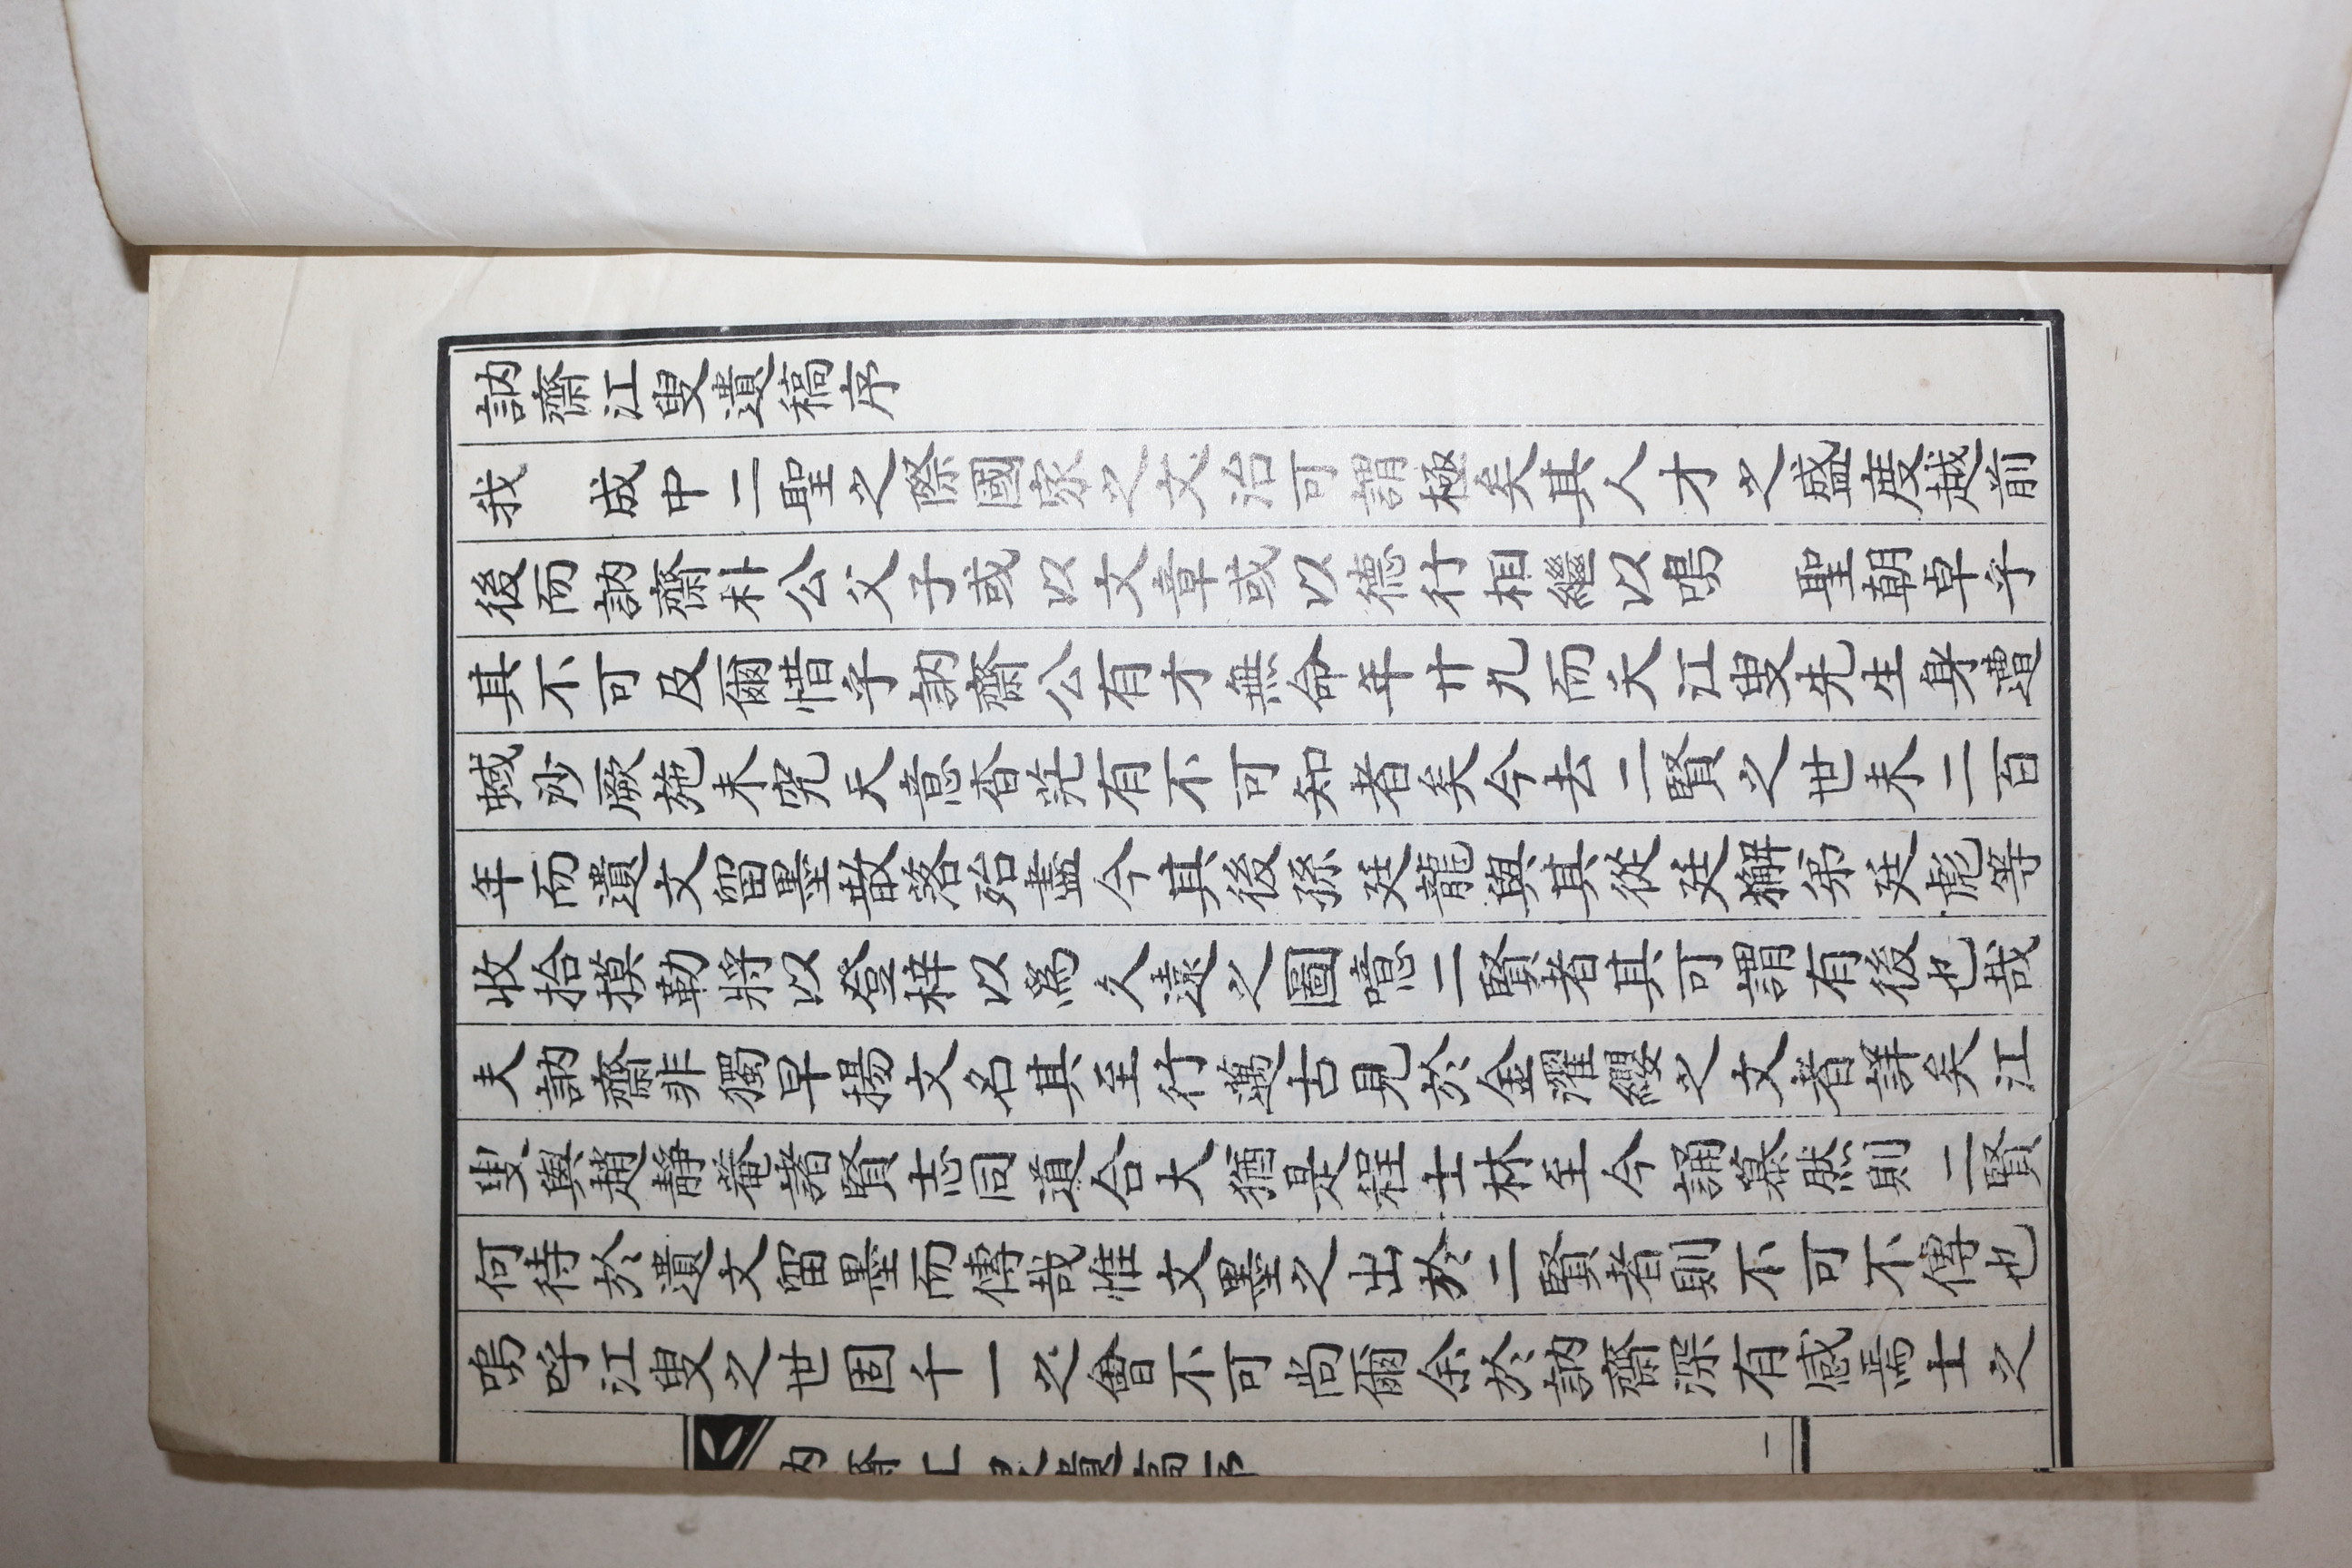 訥齋江叟遺稿序
我　成中二聖之際國家之文治可謂極矣其人才之盛度越前
後而訥齋朴公父子或以文章或以德行相繼以鳴　聖朝卓乎
其不可及爾惜乎訥齋公有才無命年廿九而夭江叟先生身遭
蜮沙厥施未究天意杳茫有不可知者矣今去二賢之世未二百
年而遺文留墨散落殆盡今其後孫廷龍與其從廷獬弟廷彪等
收拾摸勒將以登梓以爲久遠之圖噫二賢者其可謂有後也哉
夫訥齋非獨早揚文名其至行邁古見於金濯纓之文者詳矣江
叟與趙靜菴諸賢志同道合大猶是程士林至今誦慕然則二賢
何待於遺文留墨而傳哉惟文墨之出於二賢者則不可不傳也
嗚呼江叟之世固千一之會不可尙爾余於訥齋深有感焉士之
訥齋江叟遺稿序　一